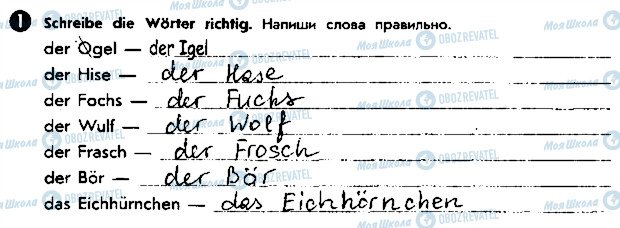 1 Schreibe die Wörter richtig. Напиши слова правильно.
der Ogel — der Igel
der Hise — der Hase
der Fochs — der Fuchs
der Wulf — der Wolf
der Frasch — der Frosch
der Bör — der Bär
das Eichhürnchen — das Eichhörnchen